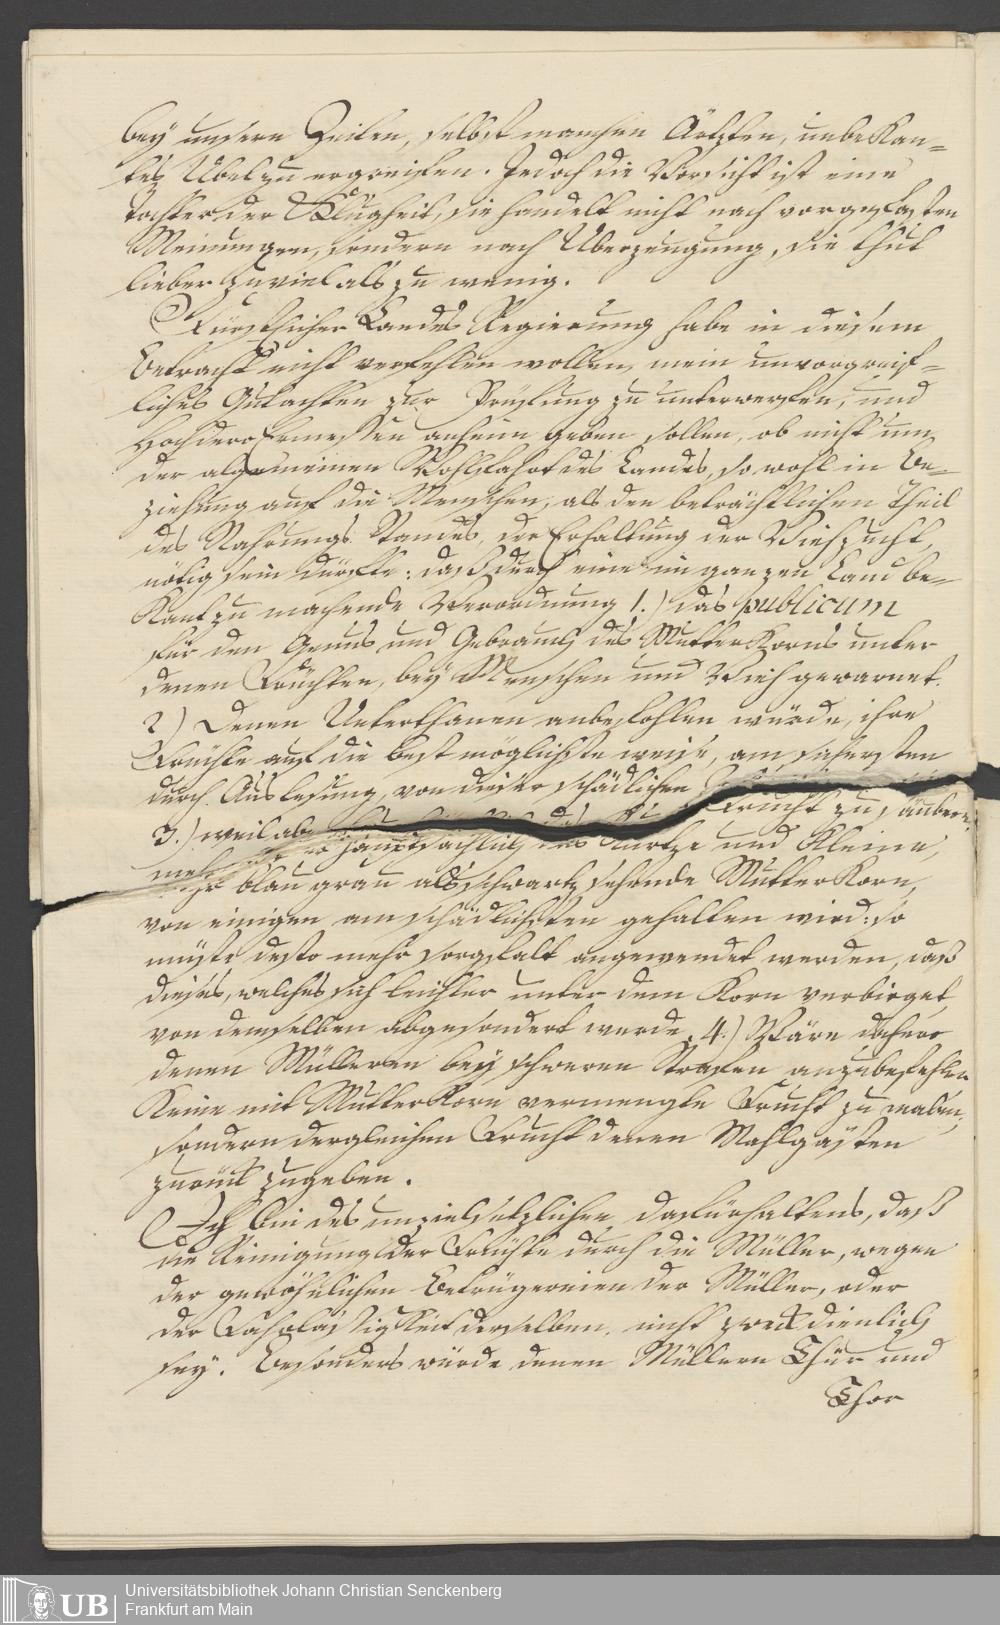 bey unsern Zeiten, selbst manchen Ärtzten, unbekan-
tes Übel zu ergreifen. Jedoch die Vorsicht ist eine
Tochter der Klugheit, sie handelt nicht nach vorgefasten
Meinungen, sondern nach Überzeugung, sie thut
lieber zu viel als zu wenig.
Fürstlicher Landes Regierung habe in diesem
Betracht nicht verfehlen wollen, mein unvorgreif-
liches Gutachten zur Prüfung zu unterwerfen, und
Hochdero Ermessen anheim geben sollen, ob nicht um
der algemeinen Wohlfahrt des Landes, so wohl in Be-
ziehung auf die Menschen, als den beträchtlichen Theil
des Nahrungs Standes, der Erhaltung der Viehzucht,
nötig sein dürfte: daß durch eine im ganzen Land be-
kant zu machende Verordnung 1.) das publicum
für den Genus und Gebrauch des Mutterkorns unter
denen Früchten, bey Menschen und Vieh gewarnet.
2) Denen Unterthanen anbefohlen würde, ihre
Früchte auf die best möglichste weise, am sichersten
durch Auslesung, von dieser schädlichen
Frucht zu säubern.
3.) weil ab
hauptsächlich das kurtze und kleine,
mehr blau grau als schwartz sehende Mutterkorn,
von einigen am schädlichsten gehalten wird: so
müste desto mehr sorgfalt angewendet werden, daß
dieses, welches sich leichter unter dem Korn verbirget,
von demselben abgesondert werde. 4.) Wäre dahero
denen Mülleren bey schweren Strafen anzubefehlen
keine mit Mutterkorn vermengte Frucht zu malen,
sondern dergleichen Frucht denen Mahlgästen
zurück zugeben.
Ich bin des unzielsetzlichen dafürhaltens, daß
die Reinigung der Früchte durch die Müller, wegen
der gewöhnlichen Betrügereien der Müller, oder
der Fahrläßigkeit derselben, nicht zweckdienlich
sey. Besonders würde denen Müllern Thür und
Thor
UB Universitätsbibliothek Johann Christian Senckenberg
Frankfurt am Main